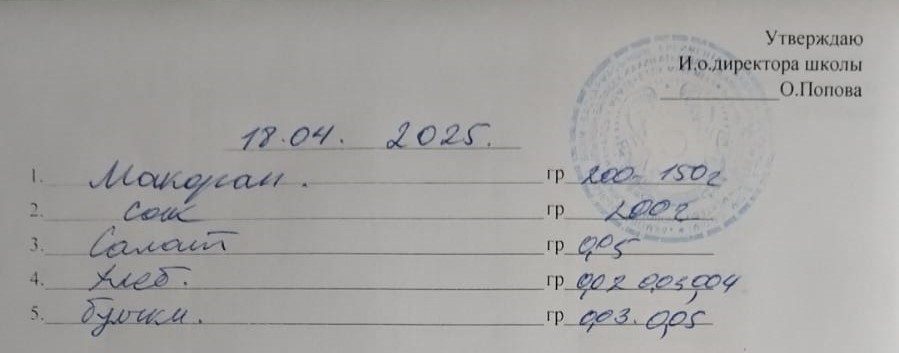 Утверждаю
И.о.директора школы
О.Попова
18.04. 2025.
1. Макоран. гр 200- 150г
2. сок гр 200г
3. Салат гр 0,05
4. Хлеб. гр 0,02 0,03,0,04
5. булочки. гр 0,03. 0,05